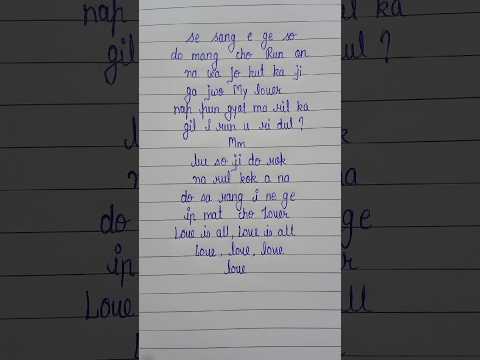 se sang e ge so
do mang cho Run on
na wa jo kut ka ji
ga jwo My lover
nap pun gyot ma ril ka
gil l run u ri dul?
Mm
lue so ji do rok
na rul kok a na
do sa rang i ne ge
ip mat cho Lover
Love is all, Love is all
Love, love, love
love